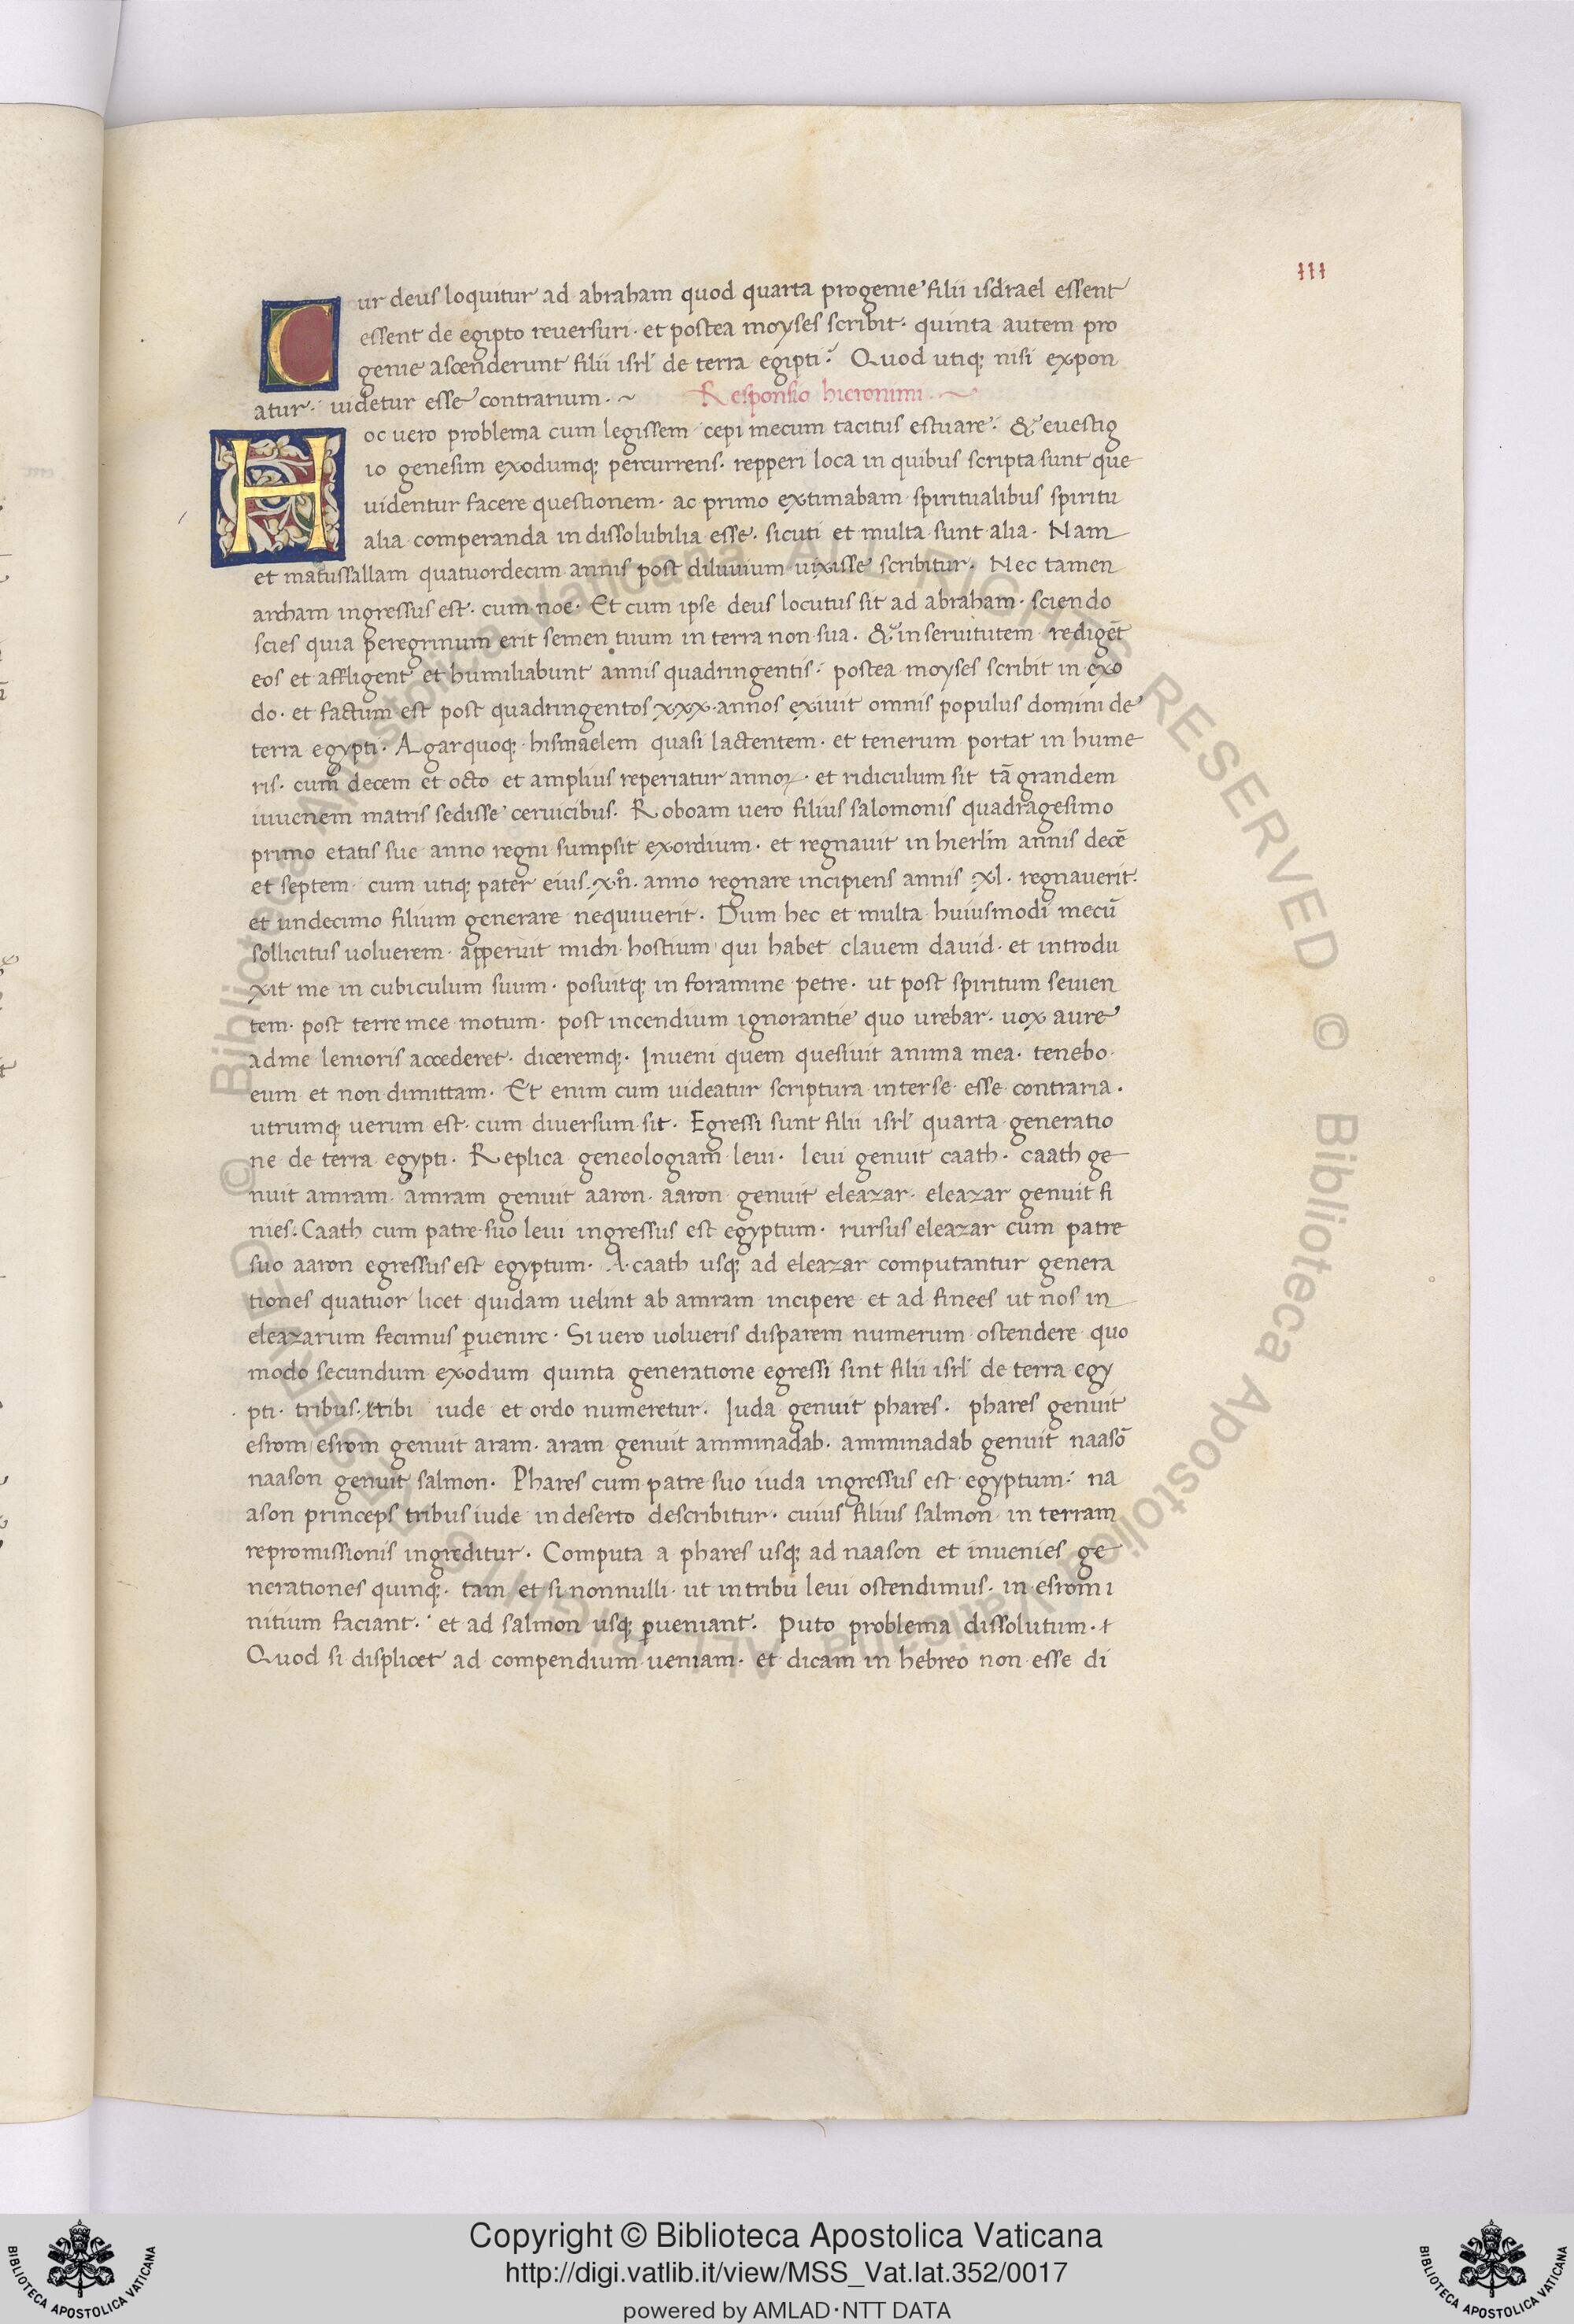 111
Cur deus loquitur ad abraham quod quarta progenie filii isdrael essent
essent de egipto reuersuri· et postea moyses scribit· quinta autem pro
genie ascenderunt filii isrł de terra egipti? Quod utiqꝫ nisi expon
atur· uidetur esse contrarium· ~ Responsio hieronimi·~
Hoc uero problema cum legissem cepi mecum tacitus estuare· & euestig
io genesim exodumqꝫ percurrens· repperi loca in quibus scripta sunt que
uidentur facere questionem· ac primo extimabam spiritualibus spiritu
alia comperanda indissolubilia esse· sicuti et multa sunt alia· Nam
et matussallam quatuordecim annis post diluuium uixisse scribitur· Nec tamen
archam ingressus est· cum noe· Et cum ipse deus locutus sit ad abraham· sciendo
scies quia peregrinum erit semen tuum in terra non sua· & in seruitutem redigēt
eos et affligent et humiliabunt annis quadringentis· postea moyses scribit in exo
do· et factum est post quadringentos xxx·annos exiuit omnis populus domini de
terra egypti· Agar quoqꝫ hismaelem quasi lactentem· et tenerum portat in hume
ris· cum decem et octo et amplius reperiatur annoꝝ· et ridiculum sit tā grandem
iuuenem matris sedisse ceruicibus· Roboam uero filius salomonis quadragesimo
primo etatis sue anno regni sumpsit exordium· et regnauit in hierłm annis decē
et septem cum utiqꝫ pater eius· anno regnare incipiens annis ·xl· regnauerit·
et undecimo filium generare nequiuerit· Dum hec et multa huiusmodi mecū
sollicitus uoluerem· apperuit michi hostium qui habet clauem dauid· et introdu
xit me in cubiculum suum· posuitqꝫ in foramine petre· ut post spiritum seuien
tem· post terre mee motum· post incendium ignorantie quo urebar· uox aure
ad me lenioris accederet· diceremqꝫ· Inueni quem quesiuit anima mea· tenebo
eum et non dimittam· Et enim cum uideatur scriptura inter se esse contraria·
utrumqꝫ uerum est· cum diuersum sit· Egressi sunt filii isrł quarta generatio
ne de terra egypti· Replica geneologiam leui· leui genuit caath· caath ge
nuit amram· amram genuit aaron· aaron genuit eleazar· eleazar genuit fi
nies· Caath cum patre suo leui ingressus est egyptum· rursus eleazar cum patre
suo aaron egressus est egyptum· A caath usqꝫ ad eleazar computantur genera
tiones quatuor licet quidam uelint ab amram incipere et ad finees ut nos in
eleazarum fecimus ꝑuenire· Si uero uolueris disparem numerum ostendere quo
modo secundum exodum quinta generatione egressi sint filii isrł de terra egy
pti· tribus· tibi iude et ordo numeretur· Iuda genuit phares· phares genuit
esrom esrom genuit aram· aram genuit amminadab· amminadab genuit naasō
naason genuit salmon· Phares cum patre suo iuda ingressus est egyptum· na
ason princeps tribus iude in deserto describitur· cuius filius salmon in terram
repromissionis ingreditur· Computa a phares usqꝫ ad naason et inuenies ge
nerationes quinqꝫ· tam et si nonnulli· ut in tribu leui ostendimus· in esrom i
nitium faciant· et ad salmon usqꝫ ꝑueniant· Puto problema dissolutum·
Quod si displicet ad compendium ueniam· et dicam in hebreo non esse di
© Biblioteca Apostolica Vaticana ALL RIGHTS RESERVED © Biblioteca Apostolica Vaticana ALL RIGHTS RESERVED
Copyright © Biblioteca Apostolica Vaticana
http://digi.vatlib.it/view/MSS_Vat.lat.352/0017
powered by AMLAD·NTT DATA
BIBLIOTECA APOSTOLICA VATICANA
BIBLIOTECA APOSTOLICA VATICANA